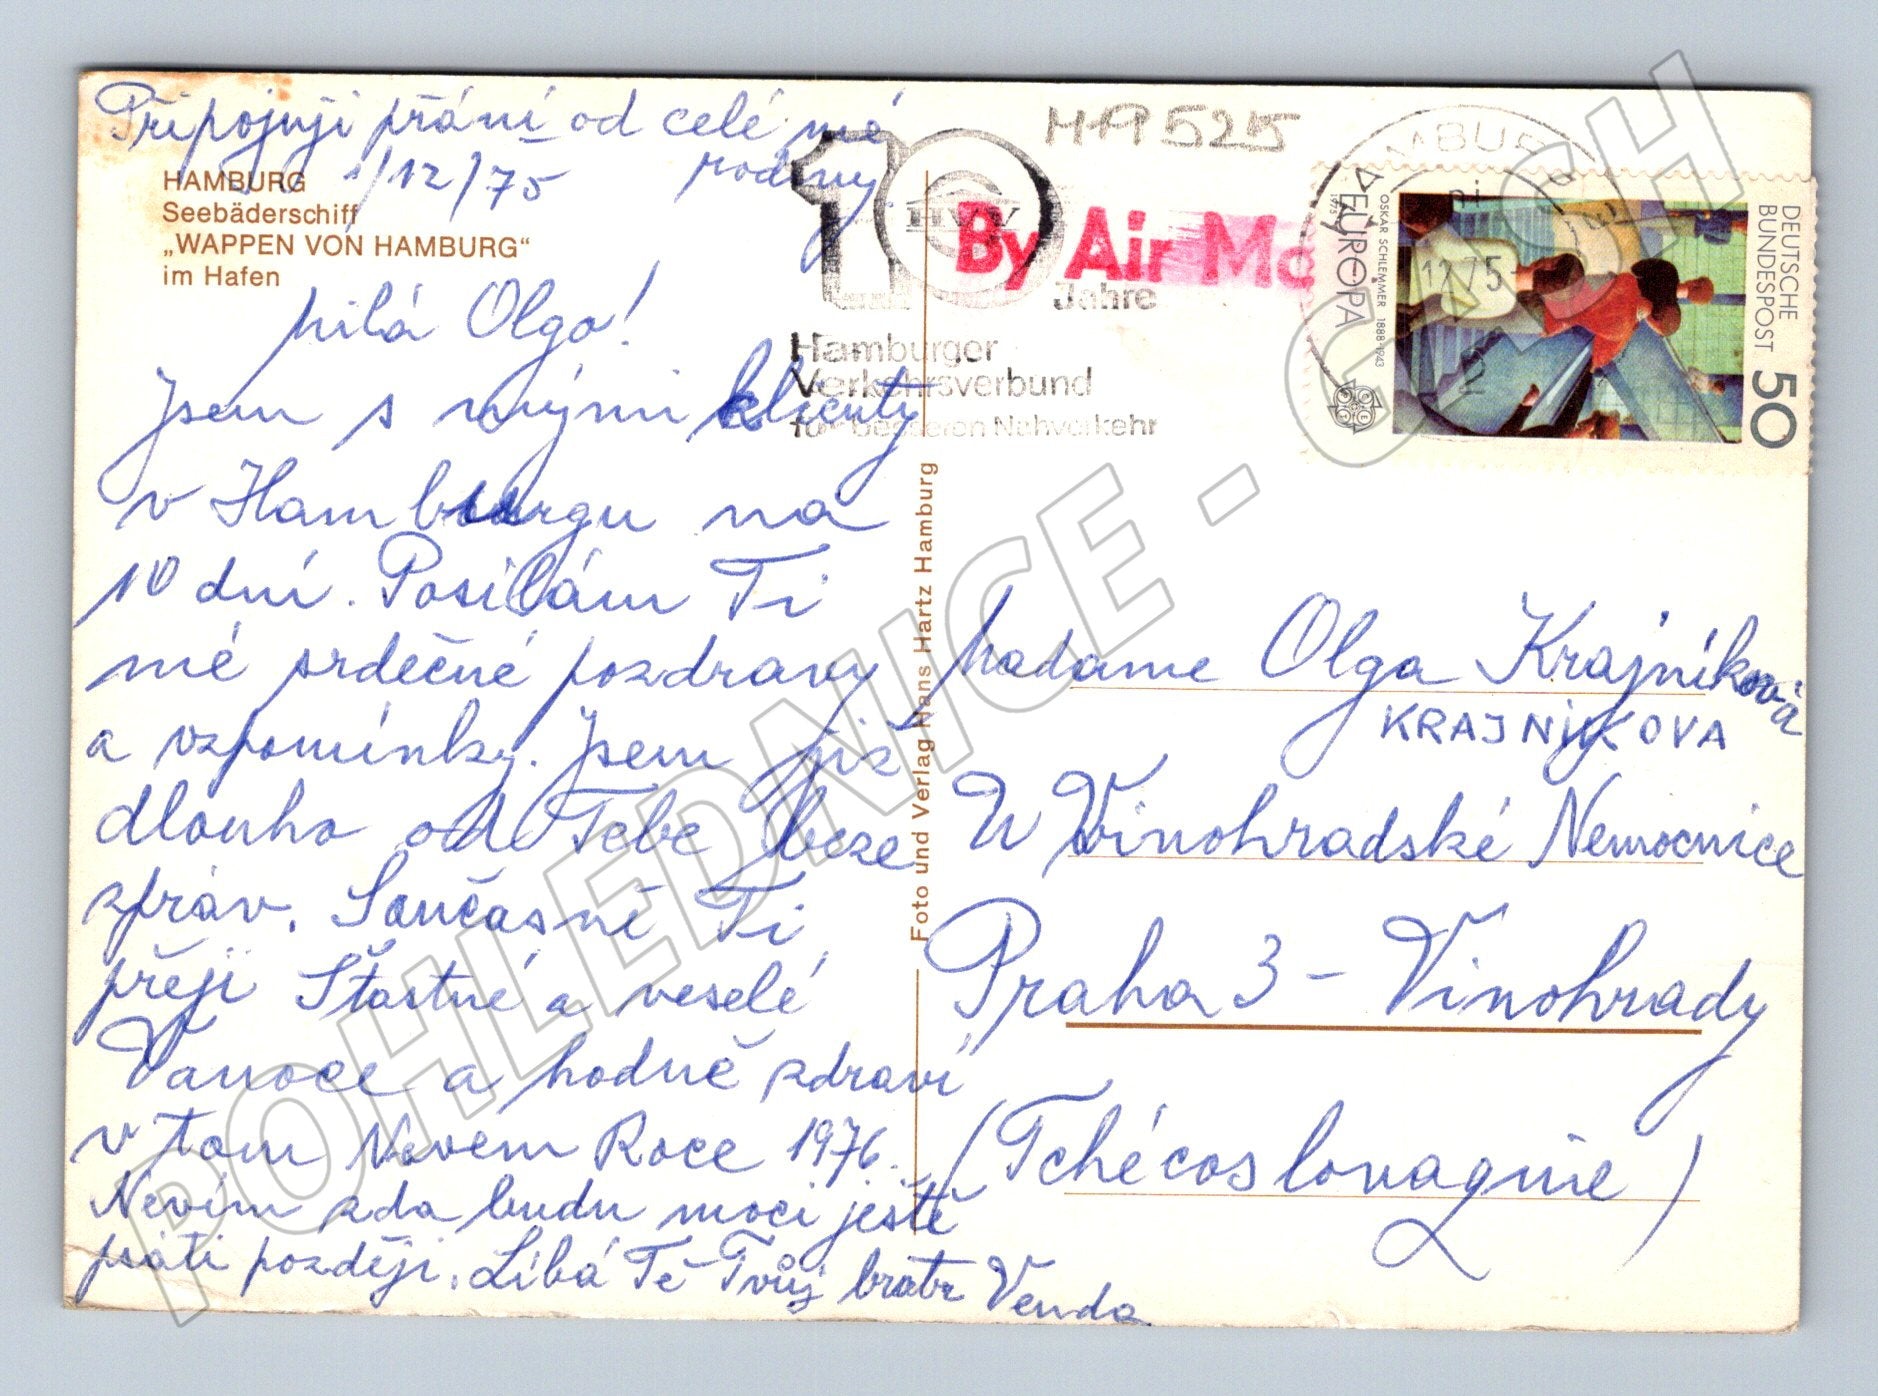 Připojuji přání od celé mé
rodiny
1/12/75
HAMBURG
Seebäderschiff
„WAPPEN VON HAMBURG“
im Hafen
Milá Olgo!
Jsem s mými klienty
v Hamburgu na
10 dní. Posílám Ti
mé srdečné pozdravy
a vzpomínky. Jsem již
dlouho od Tebe beze
zpráv. Současně Ti
přeji Šťastné a veselé
Vánoce a hodně zdraví
v tom Novém Roce 1976.
Nevím zda budu moci ještě
psáti později. Líbá Tě Tvůj bratr Venda
Foto und Verlag Hans Hartz Hamburg
10
HVV
Jahre
Hamburger
Verkehrsverbund
für besseren Nahverkehr
By Air Ma
HA525
HAMBURG
12.75
DEUTSCHE
BUNDESPOST
50
OSKAR SCHLEMMER 1888-1943
EUROPA
1975
Madame Olga Krajníková
KRAJNIKOVA
U Vinohradské Nemocnice
Praha 3 – Vinohrady
(Tchécoslovaquie)
POHLEDNICE - CASH